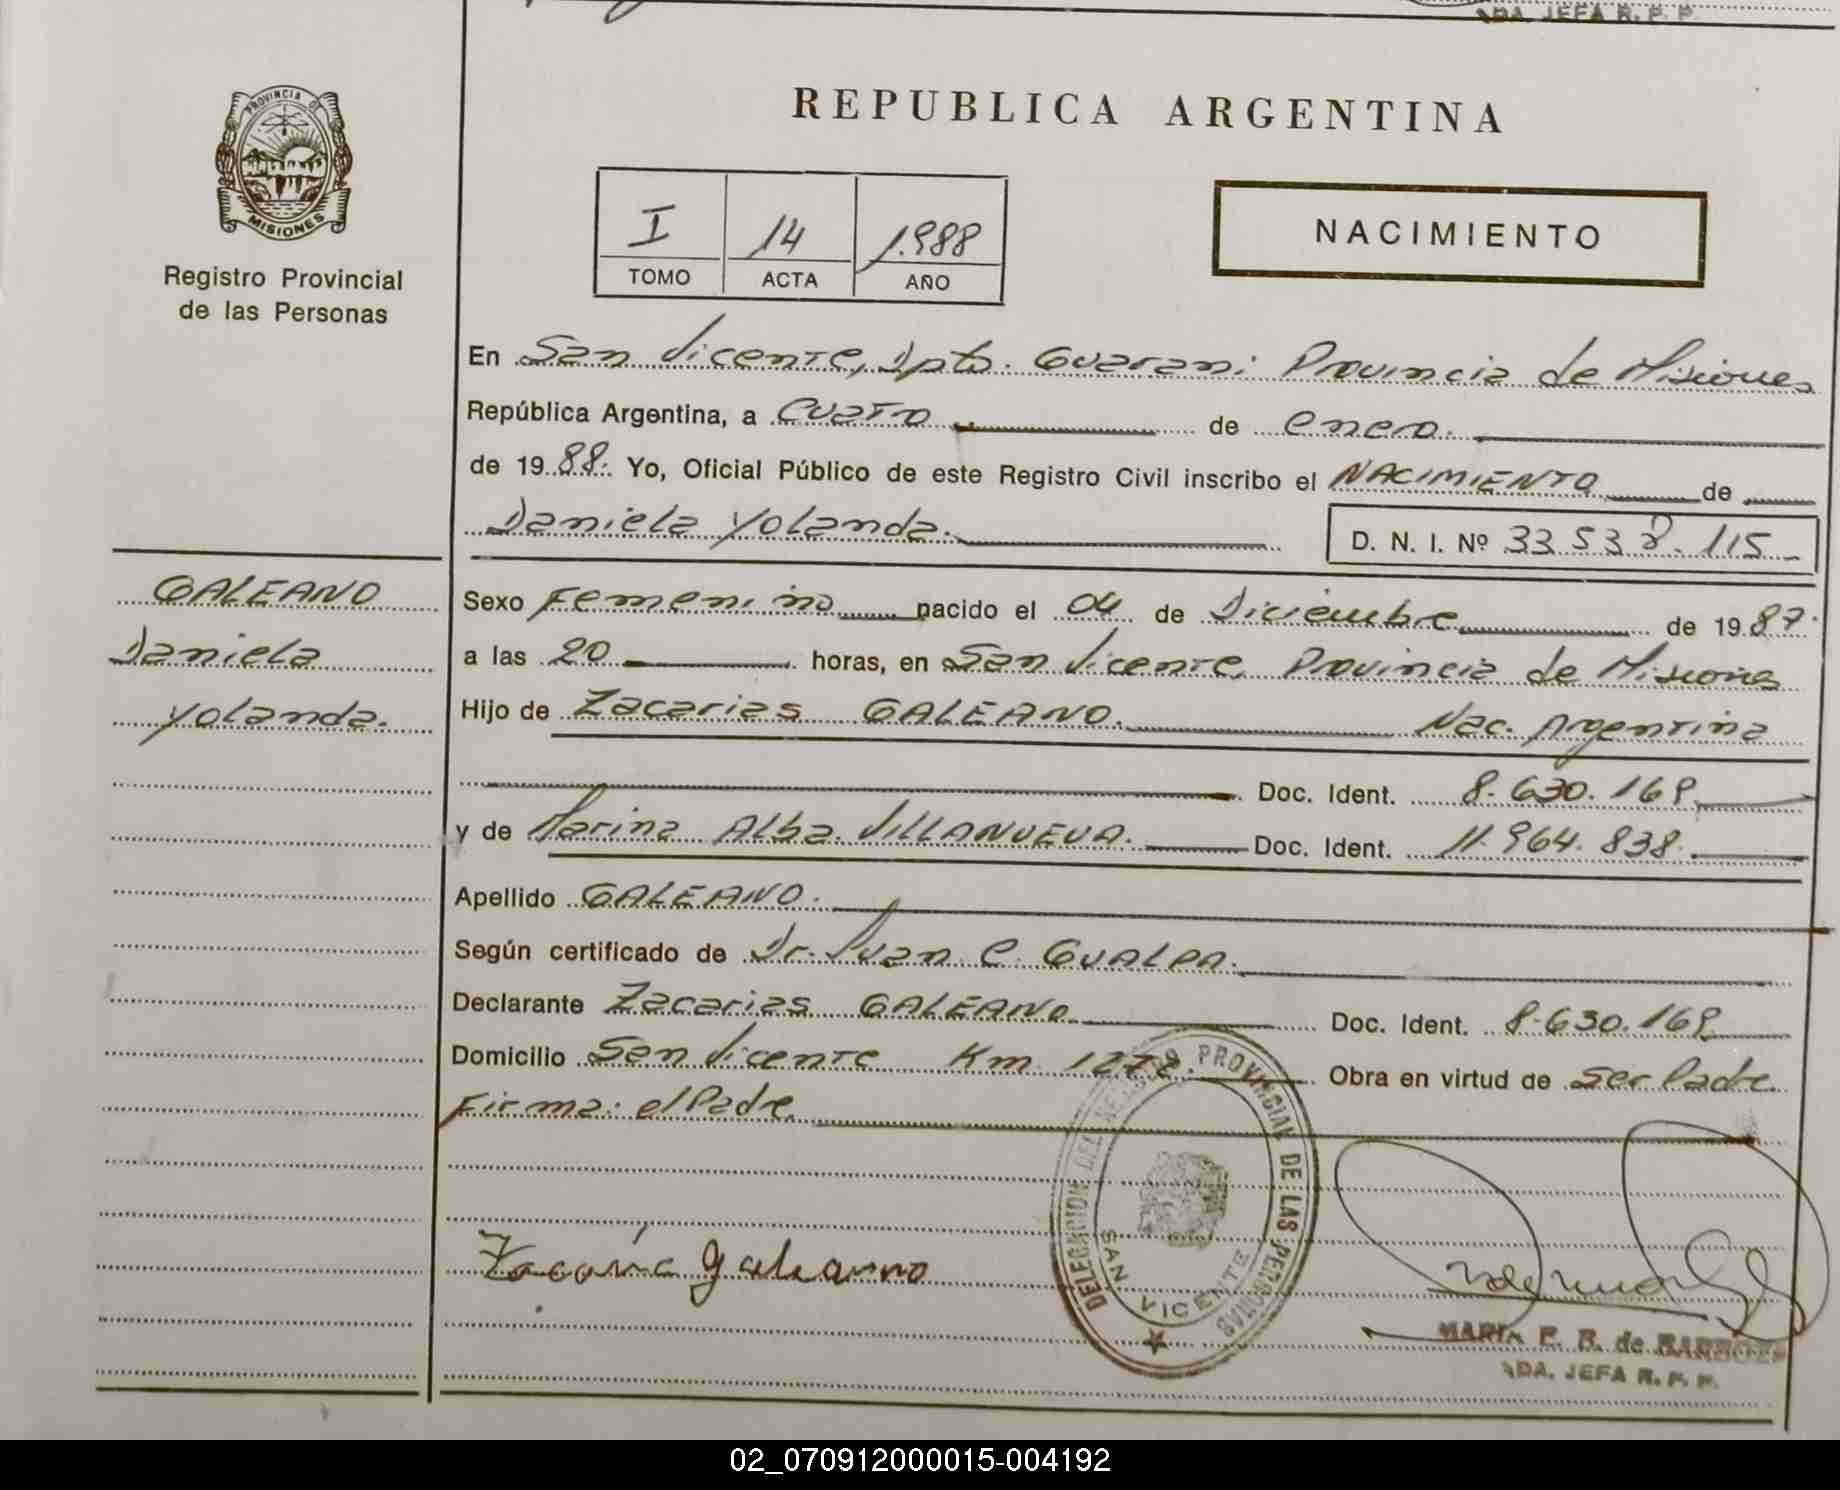 DA. JEFA R. P. P.
PROVINCIA DE
MISIONES
Registro Provincial
de las Personas
REPUBLICA ARGENTINA
I 14 1.988
TOMO ACTA AÑO
NACIMIENTO
En San Vicente, Dpto. Guarani Provincia de Misiones
República Argentina, a Cuatro de enero.
de 19 88. Yo, Oficial Público de este Registro Civil inscribo el NACIMIENTO de
Daniela Yolanda. D. N. I. Nº 33 538. 115
GALEANO
Daniela
Yolanda.
Sexo Femenino nacido el 04 de Diciembre de 19 87.
a las 20 horas, en San Vicente, Provincia de Misiones
Hijo de Zacarias GALEANO. Nac. Argentina
Doc. Ident. 8.630.169
y de Marina Alba VILLANUEVA. Doc. Ident. 11.964.838.
Apellido GALEANO.
Según certificado de Dr. Juan C. GUALPA.
Declarante Zacarias GALEANO Doc. Ident. 8.630.169
Domicilio San Vicente Km. 1272. Obra en virtud de Ser Padre
Firma: el Padre.
DELEGACION DEL REGISTRO PROVINCIAL DE LAS PERSONAS
SAN VICENTE
MARIA E. B. de BARBOZA
DA. JEFA R. P. P.
02_070912000015-004192